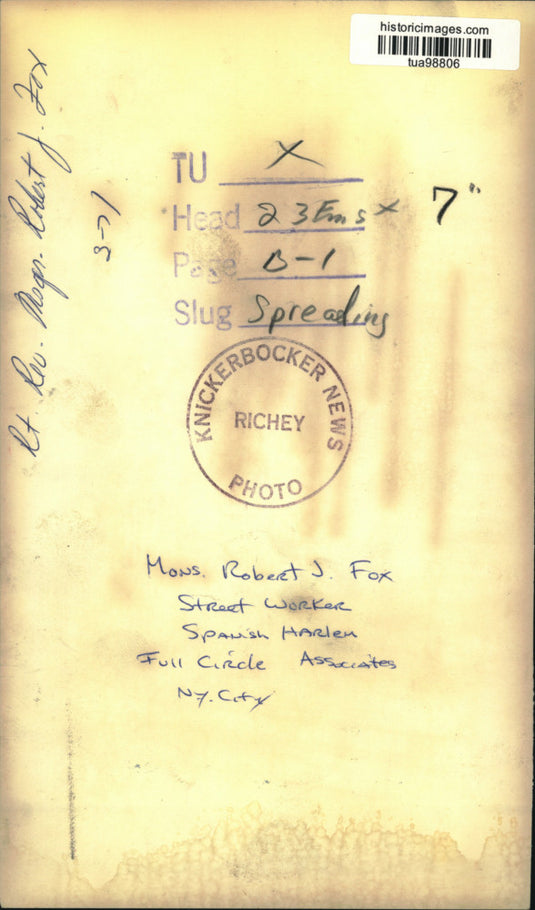 historicimages.com
tua98806
Rt. Rev. Msgr. Robert J. Fox
3-71
TU X
Head 23 Ems x 7"
Page B-1
Slug Spreading
KNICKERBOCKER NEWS
RICHEY
PHOTO
Mons. Robert J. Fox
Street Worker
Spanish Harlem
Full Circle Associates
NY. City